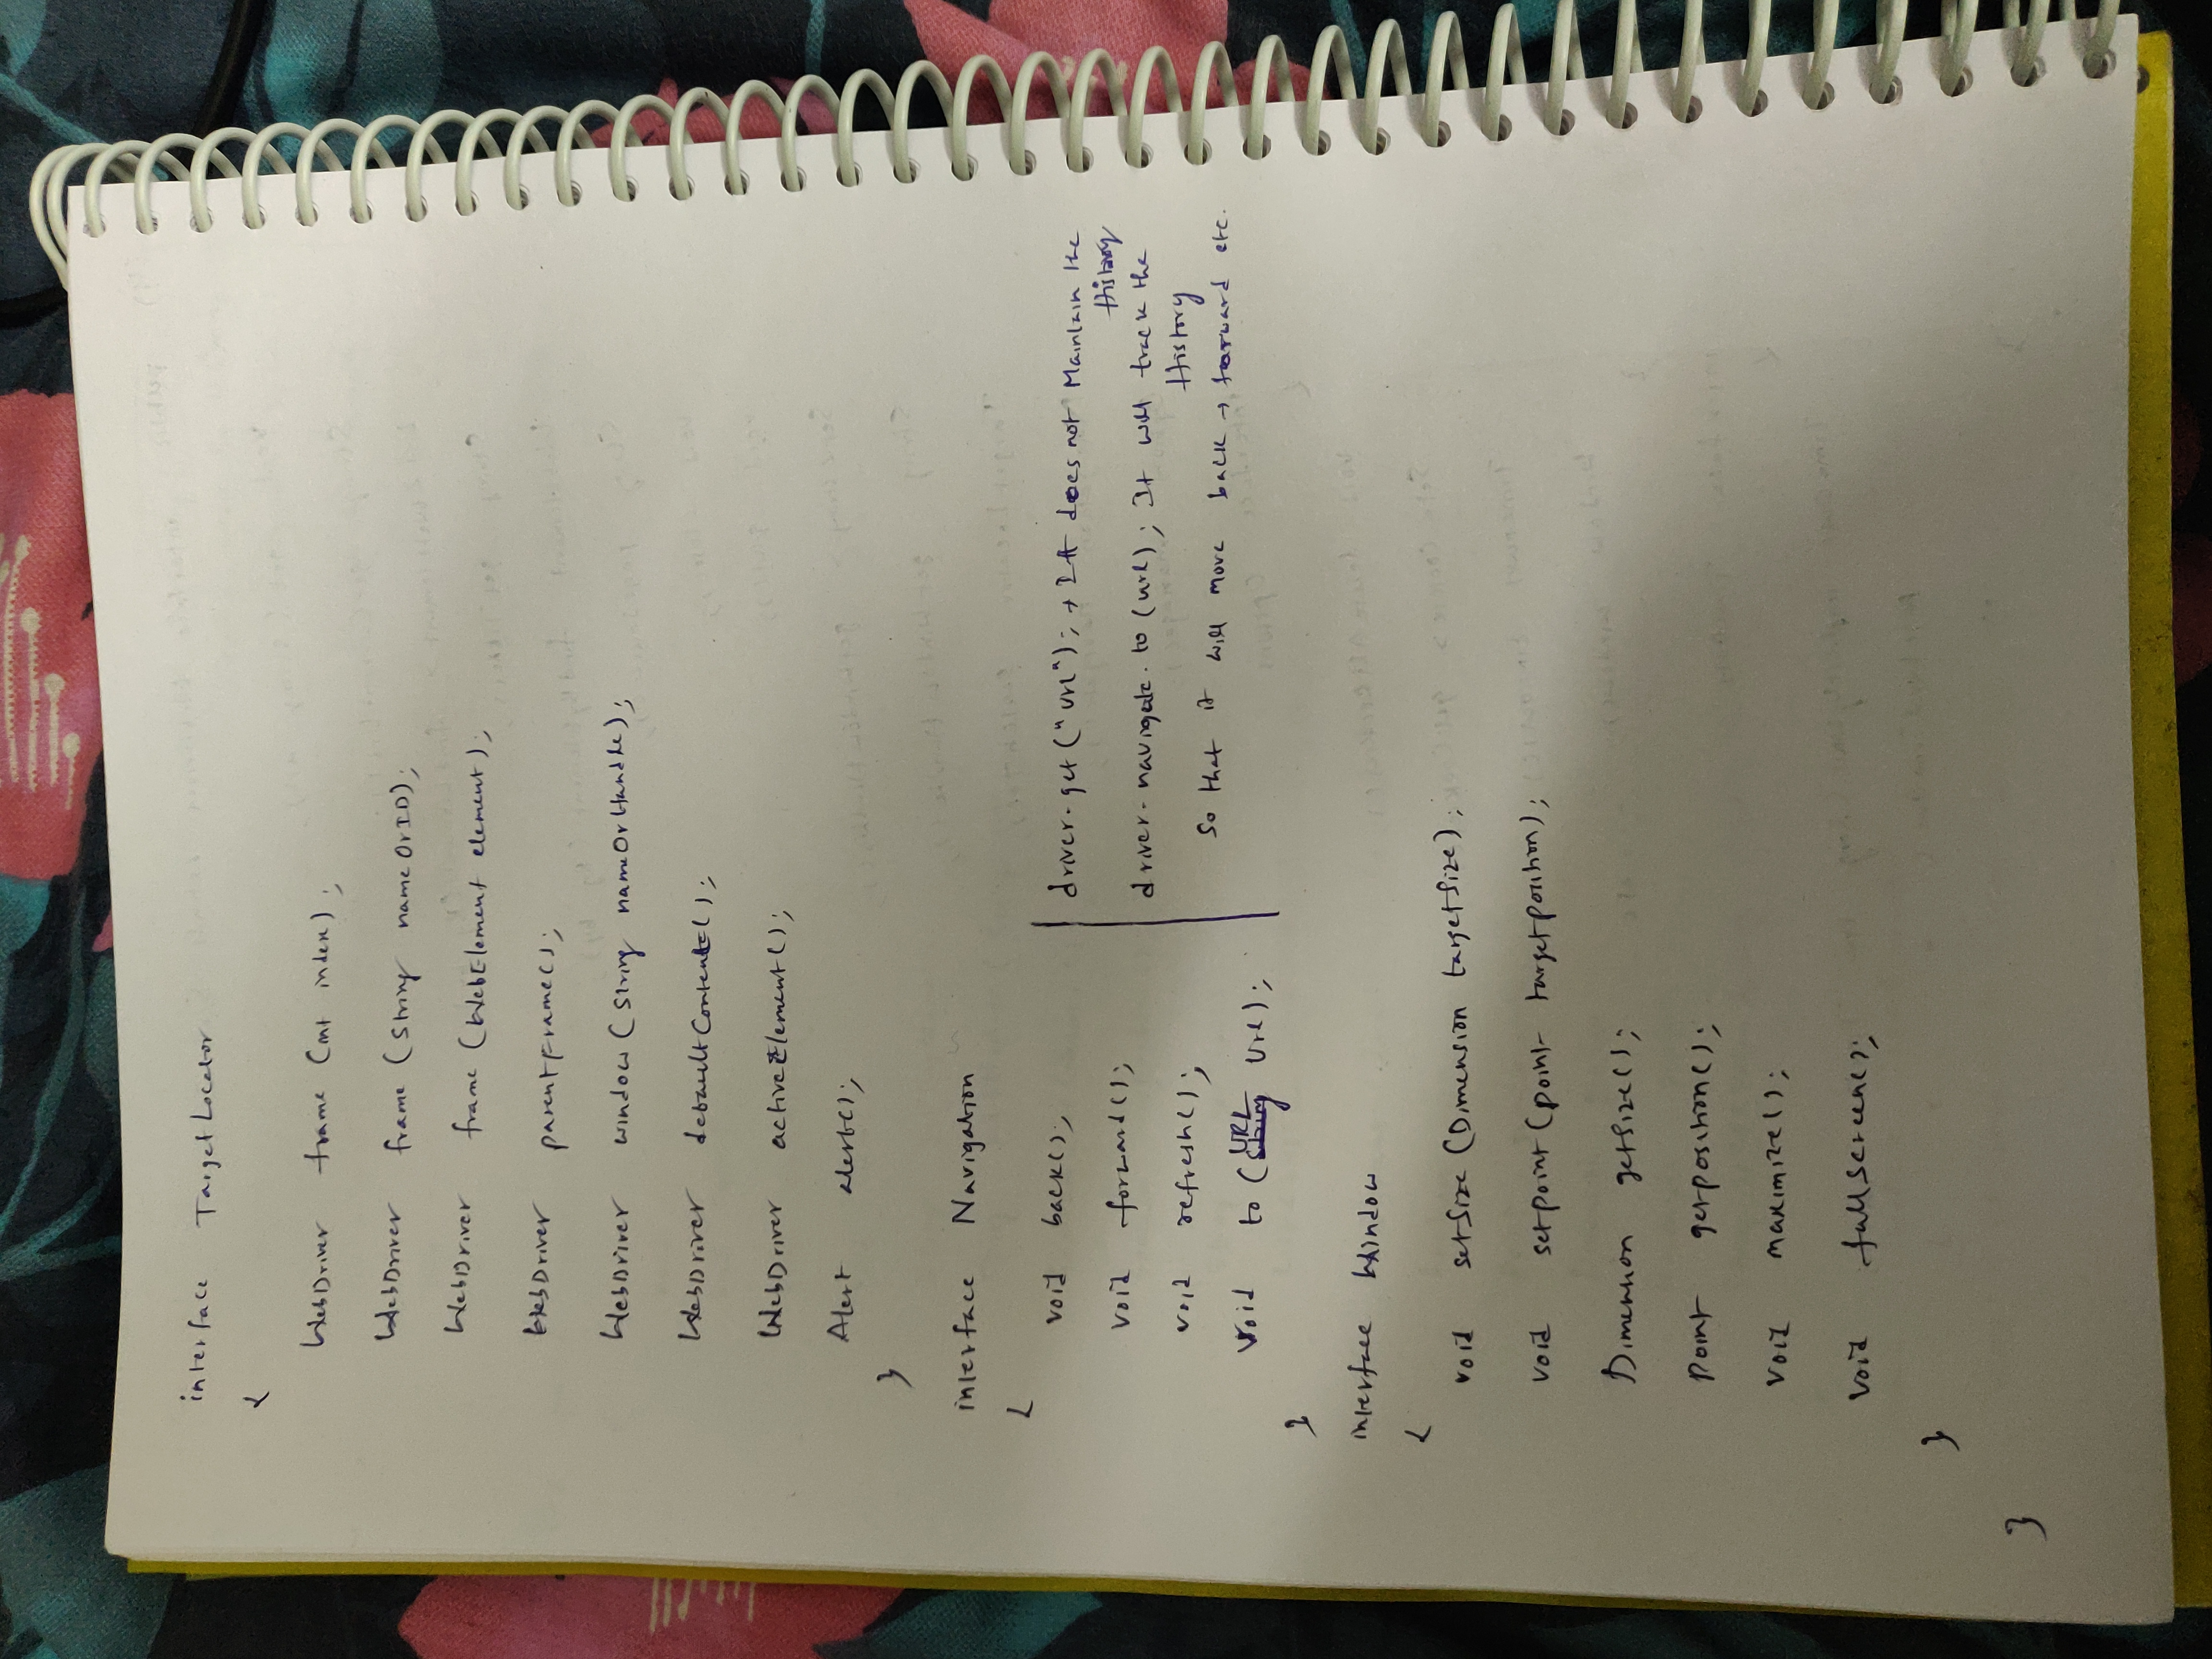 interface TargetLocator
{
WebDriver frame (int index);
WebDriver frame (String nameOrID);
WebDriver frame (WebElement element);
WebDriver parentFrame();
WebDriver window (String nameOrHandle);
WebDriver defaultContent();
WebDriver activeElement();
Alert alert();
}
interface Navigation
{
void back();
void forward();
void refresh();
void to (URL Url);
driver.get ("url"); → It does not Maintain the
History
driver.navigate.to (url); It will track the
History
So that it will move back → forward etc.
}
interface Window
{
void setSize (Dimension targetSize);
void setpoint (point targetposition);
Dimension getSize();
point getposition();
void maximize();
void fullscreen();
}
}